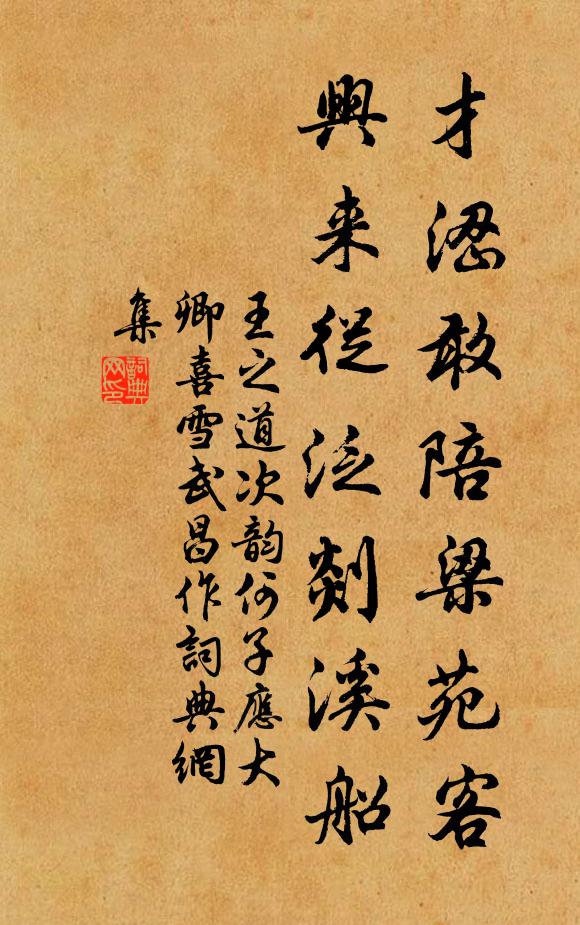 才澀敢陪梁苑客
興来從泛剡溪船
王之道次韵何子應大
卿喜雪武昌作詞典網
集
詞典
网印